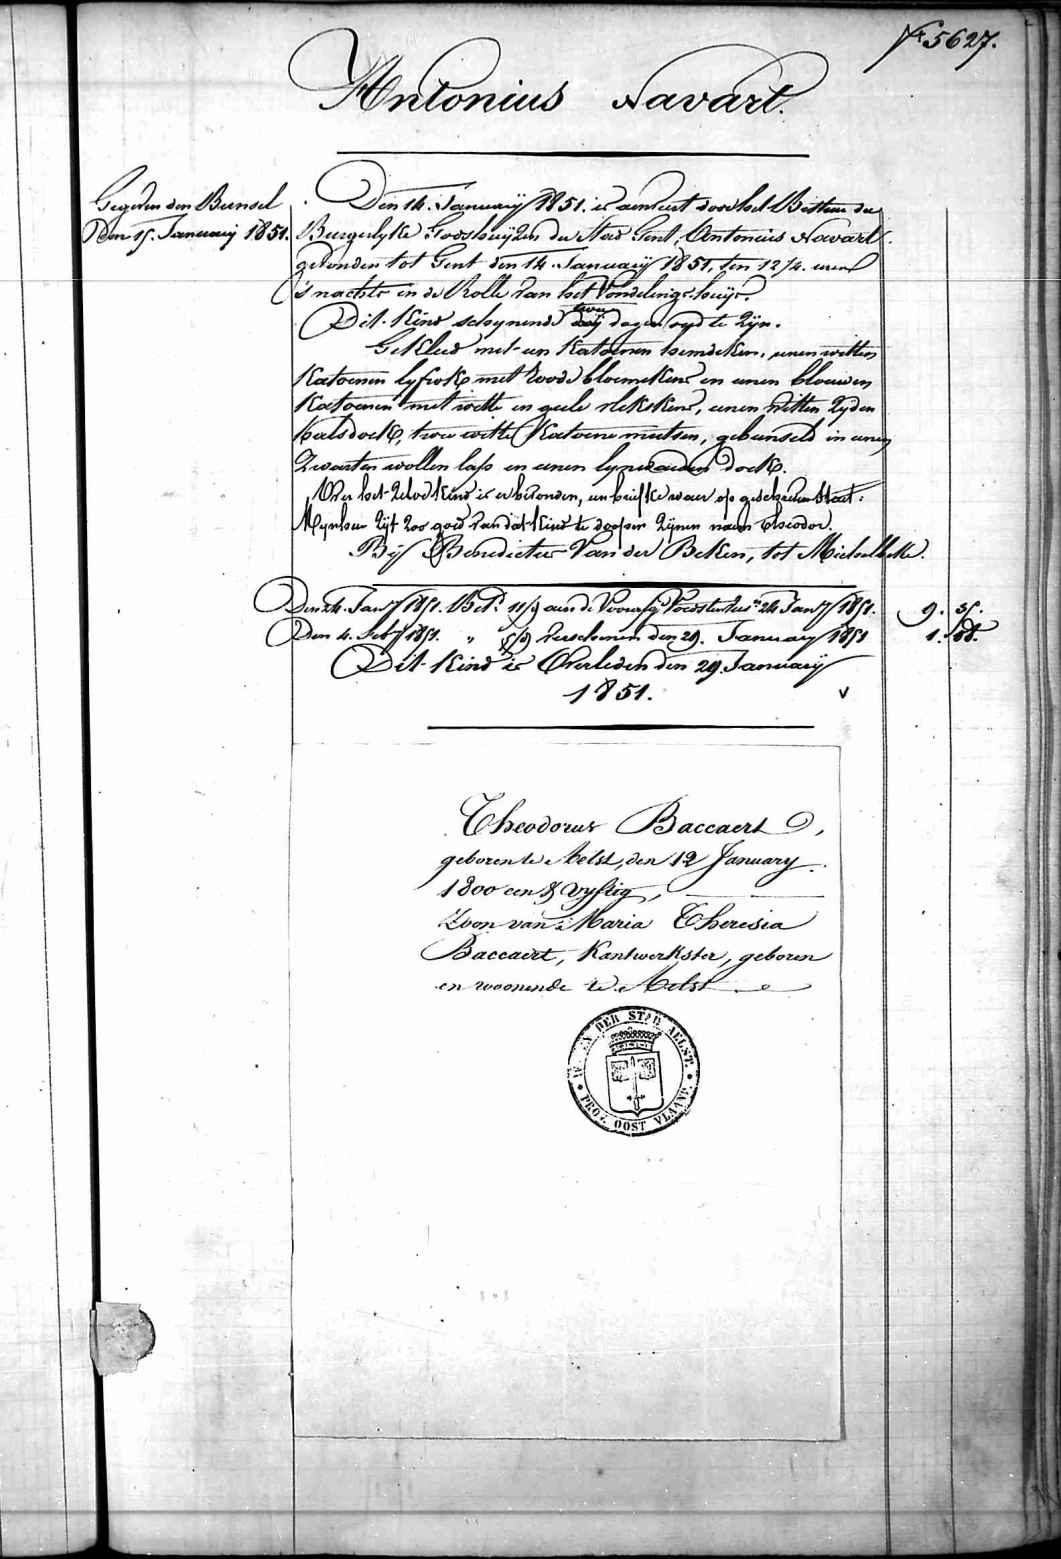 N.º 5627.
Antonius Navart.
Gegeven den Bunsel
Den 15. January 1851.
Den 14. Januarÿ 1851. is aenveert door het Bestuer der
Burgerlyke Godshuÿzen der Stad Gent, Antonius Navart.
gevonden tot Gent den 14. Januarÿ 1851, ten 12 1/4. uren
's nachts in de Rolle van het Vondelingshuÿs.
twee
Dit Kind schynende dry dagen oyd te zyn.
Gekleed met een Katoenen hemdeken, eenen witten
Katoenen lyfrok met roode bloemekens en eenen blauwen
Katoenen met witte en geele vlekskens, eenen witten zyden
halsdoek, twee witte Katoene mutsen, gebunseld in eenen
Zwarten wollen lap en eenen lynwaeden doek.
Over het zelve Kind is er bevonden, een briefke waer op geschreven staet:
Mynheer zyt zoo goed van dat kind te doopen zynen naem theodor.
Bÿ Benedictus Van der Beken, tot Michelbeke.
Den 24. Jan.y 1851. Bet.d 11/9 aen de Voorsz. Voedster tus.n 24 Jan.y 1851. 9. 35.
Den 4. Feb.y 1851. „ 5/9 verschenen den 29. January 1851 1. 88.
Dit Kind is Overleden den 29. Januarÿ
1851. v
Theodorus Baccaert,
geboren te Aelst, den 12 January
1800 een & vyftig,
Zoon van Maria Theresia
Baccaert, Kantwerkster, geboren
en woonende te Aelst
EN DER STAD AELST.
PROV. OOST VLAAND.